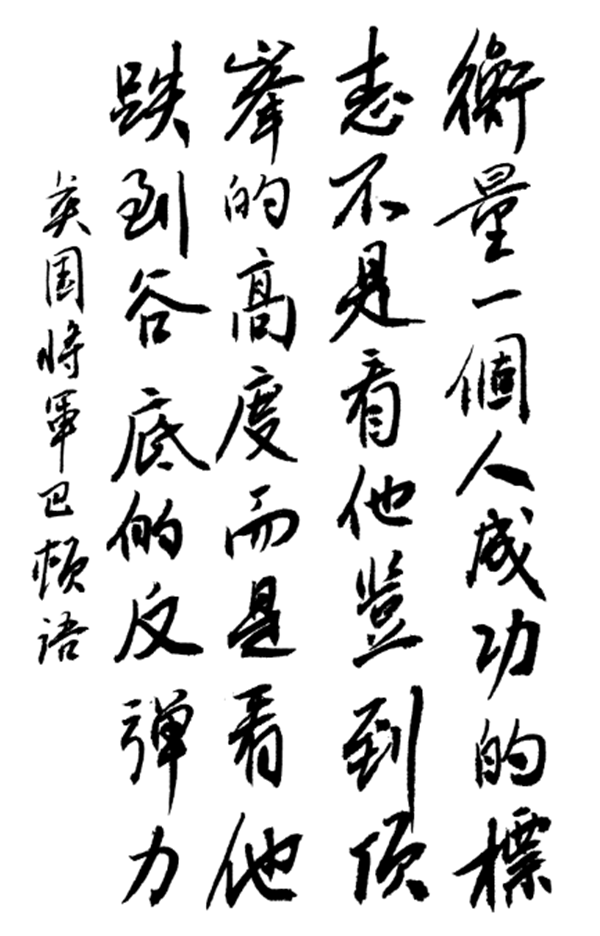 衡量一個人成功的標
志不是看他登到頂
峯的高度而是看他
跌到谷底的反弹力
英国将軍巴頓语